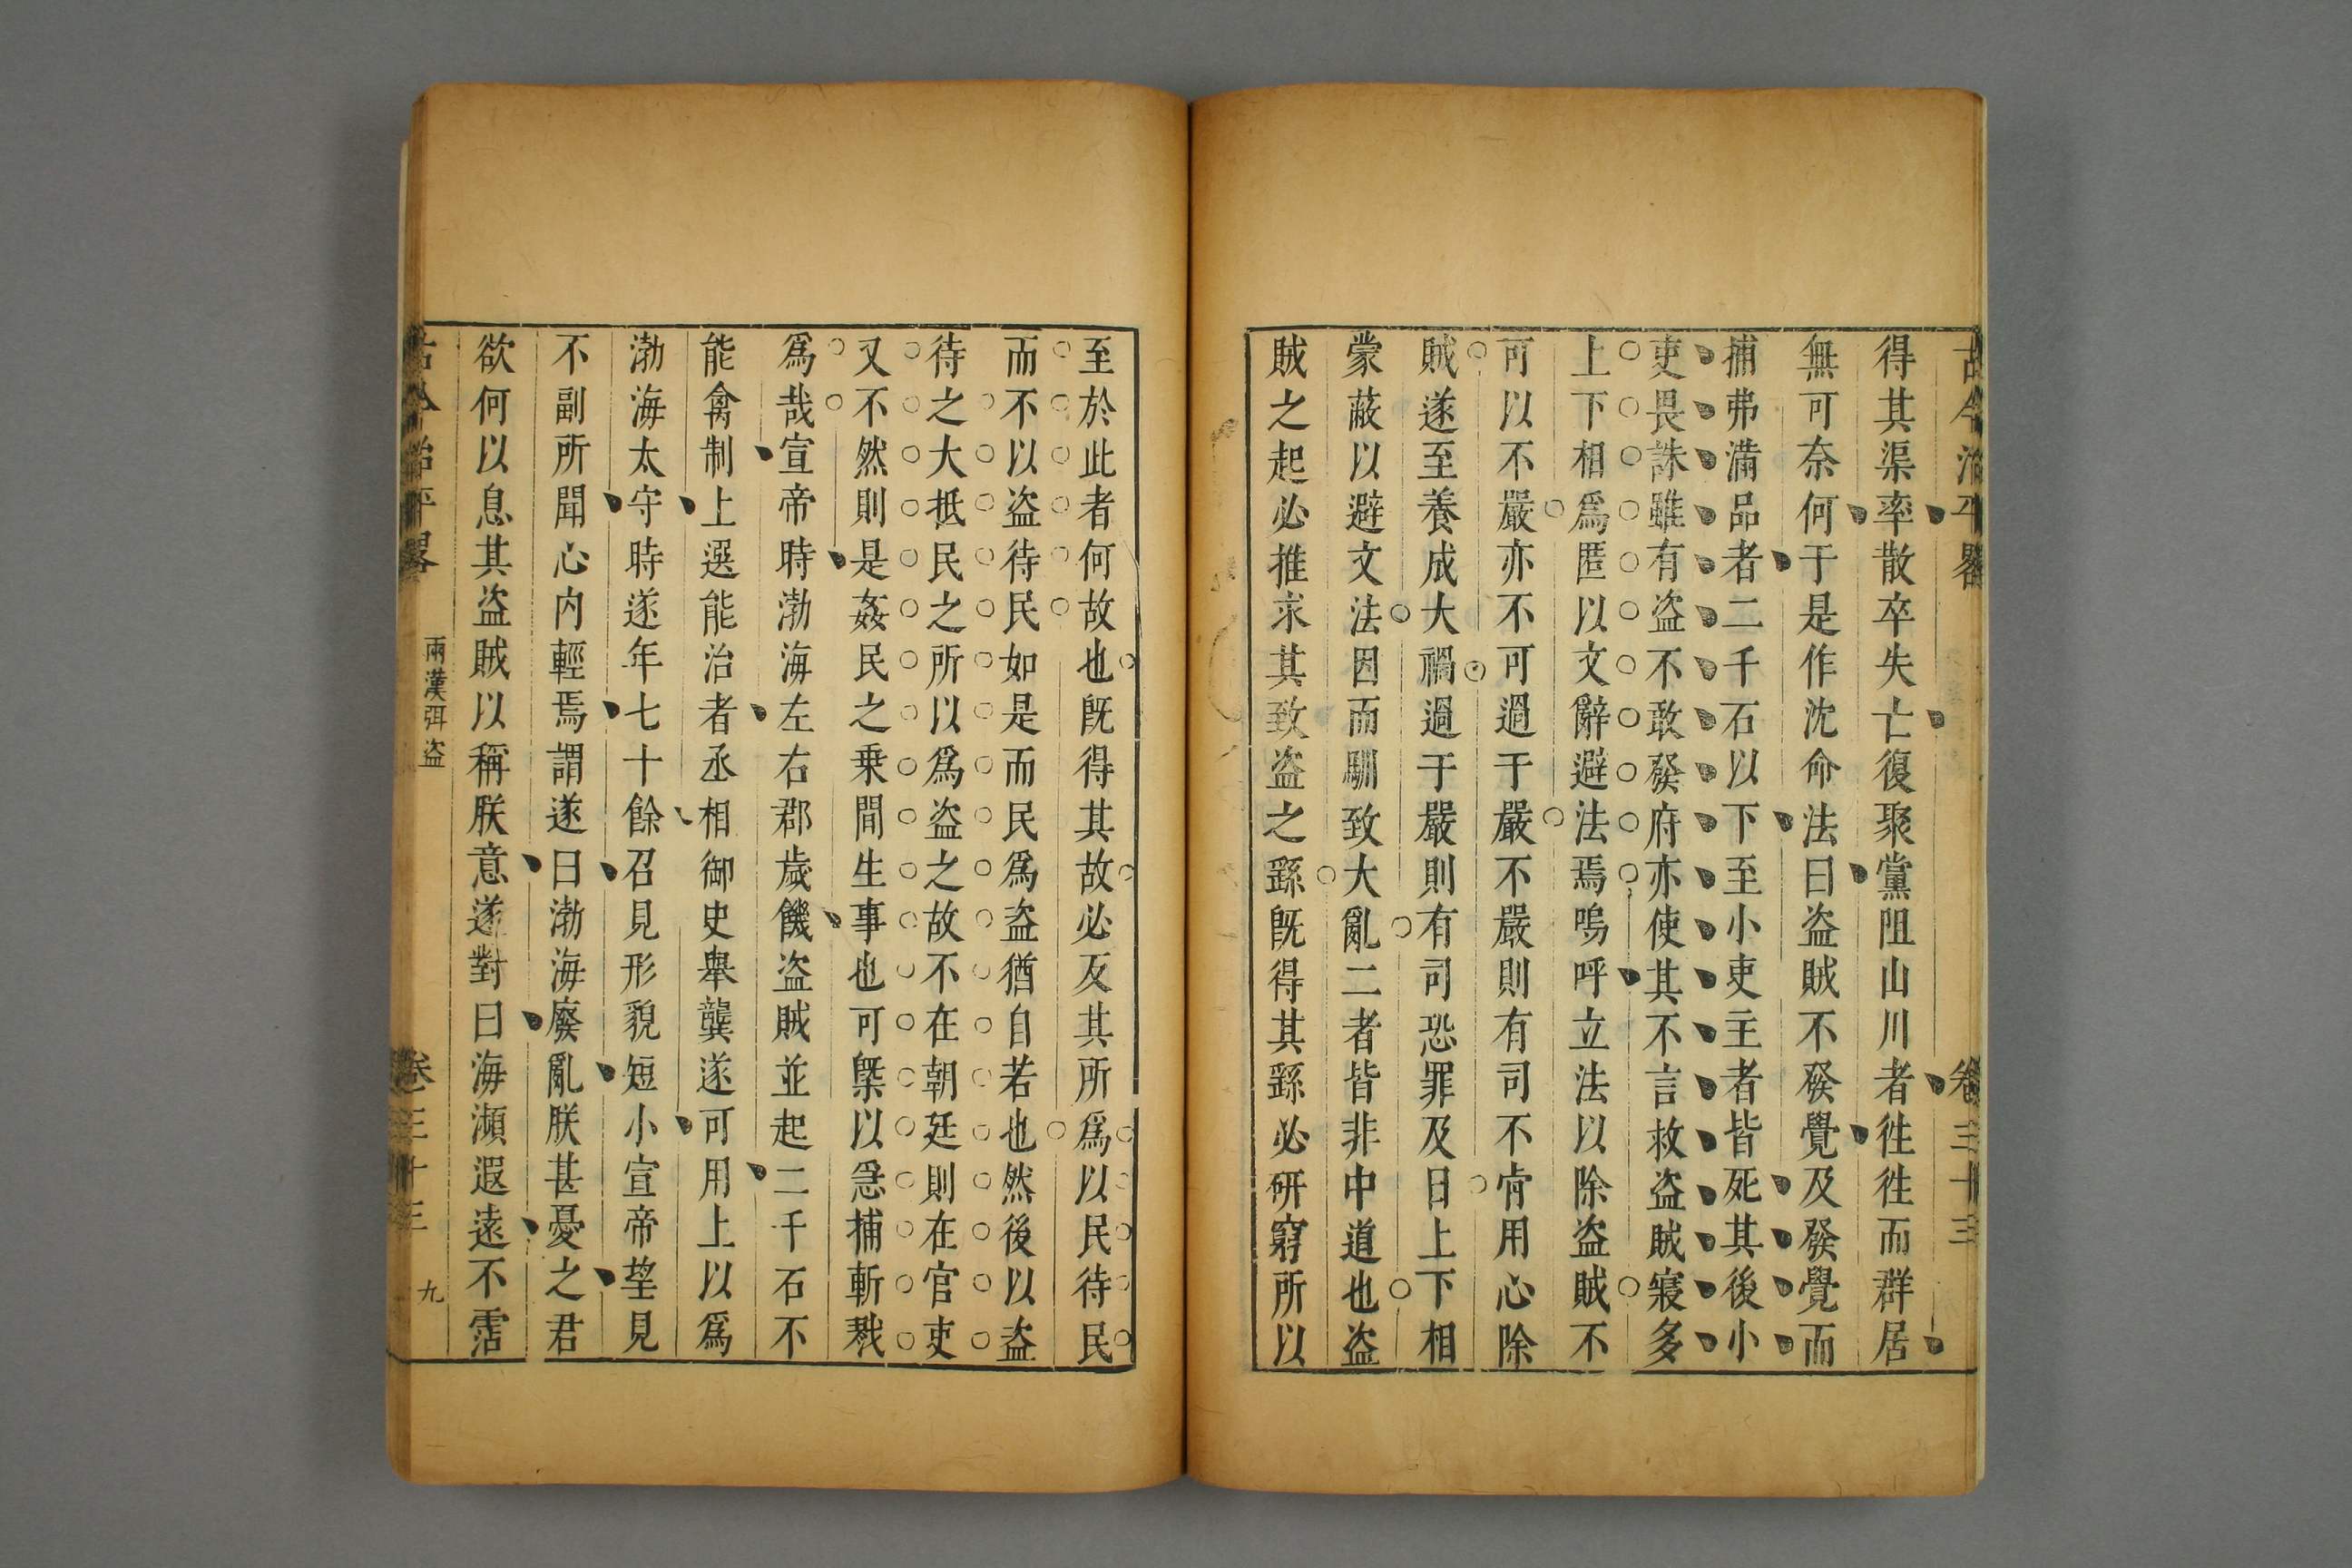 古今治平畧 卷三十三
得其渠率散卒失亡復聚黨阻山川者徃徃而群居
無可奈何于是作沈命法曰盗賊不發覺及發覺而
捕弗滿品者二千石以下至小吏主者皆死其後小
吏畏誅雖有盗不敢發府亦使其不言故盗賊寖多
上下相爲匿以文辭避法焉嗚呼立法以除盗賊不
可以不嚴亦不可過于嚴不嚴則有司不肯用心除
賊遂至養成大禍過于嚴則有司恐罪及日上下相
蒙蔽以避文法因而馴致大亂二者皆非中道也盗
賊之起必推求其致盗之繇既得其繇必研窮所以
至於此者何故也既得其故必反其所爲以民待民
而不以盗待民如是而民爲盗猶自若也然後以盗
待之大抵民之所以爲盗之故不在朝廷則在官吏
又不然則是姦民之乗間生事也可槩以急捕斬戮
爲哉宣帝時渤海左右郡歲饑盗賊並起二千石不
能禽制上選能治者丞相御史舉龔遂可用上以爲
渤海太守時遂年七十餘召見形貌短小宣帝望見
不副所聞心内輕焉謂遂曰渤海廢亂朕甚憂之君
欲何以息其盗賊以稱朕意遂對曰海瀕遐遠不霑
古今治平畧 兩漢弭盗 卷三十三 九